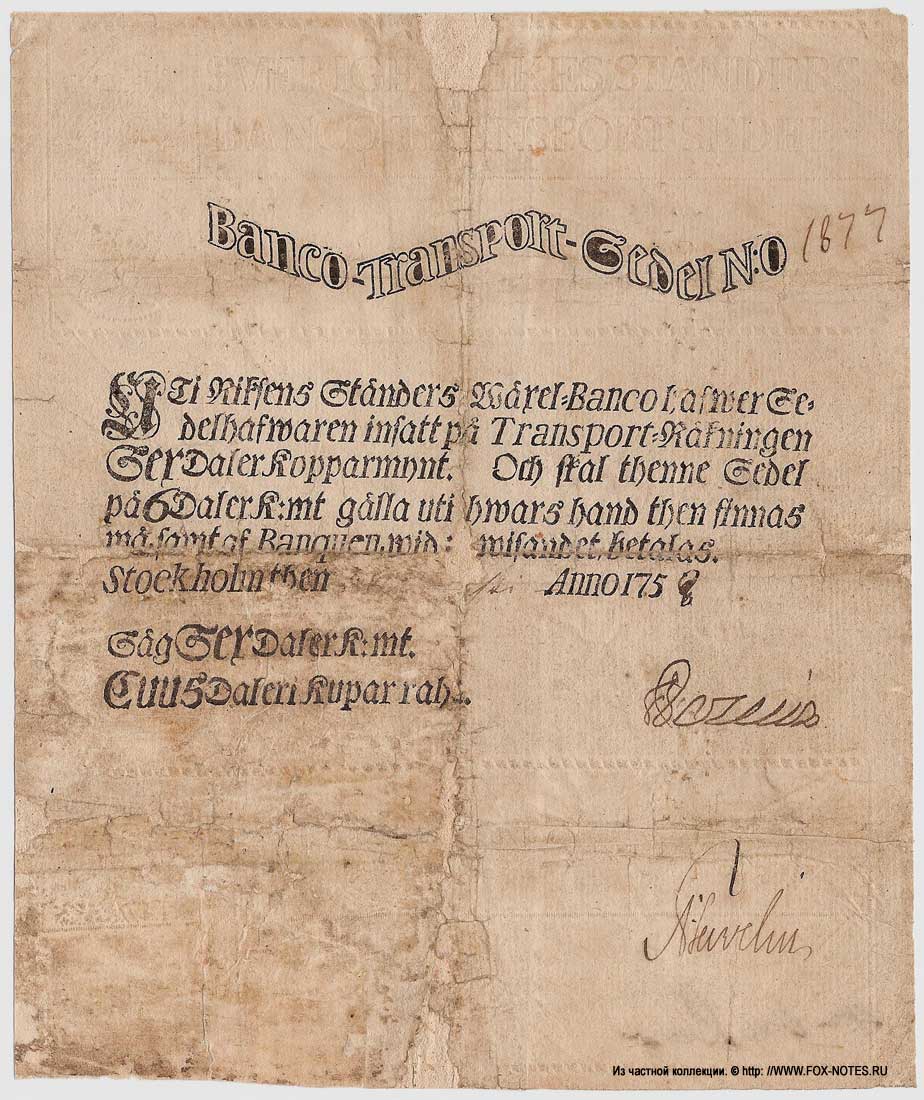 SVERIGES RIKES STÄNDERS
BANCO TRANSPORT SEDEL
Banco-Transport-Sedel N:o 1877
UTi Riksens Ständers Wäxel-Banco hafwer Se-
delhafwaren insatt på Transport-Räkningen
Sex Daler Kopparmynt. Och skal thenne Sedel
på 6 Daler K:mt gälla uti hwars hand then finnas
må, samt af Banquen, wid: wisandet, betalas.
Stockholm then Anno 175
Säg Sex Daler K:mt.
Cuus Daleri Kupar rah:.
Из частной коллекции. © http: //WWW.FOX-NOTES.RU